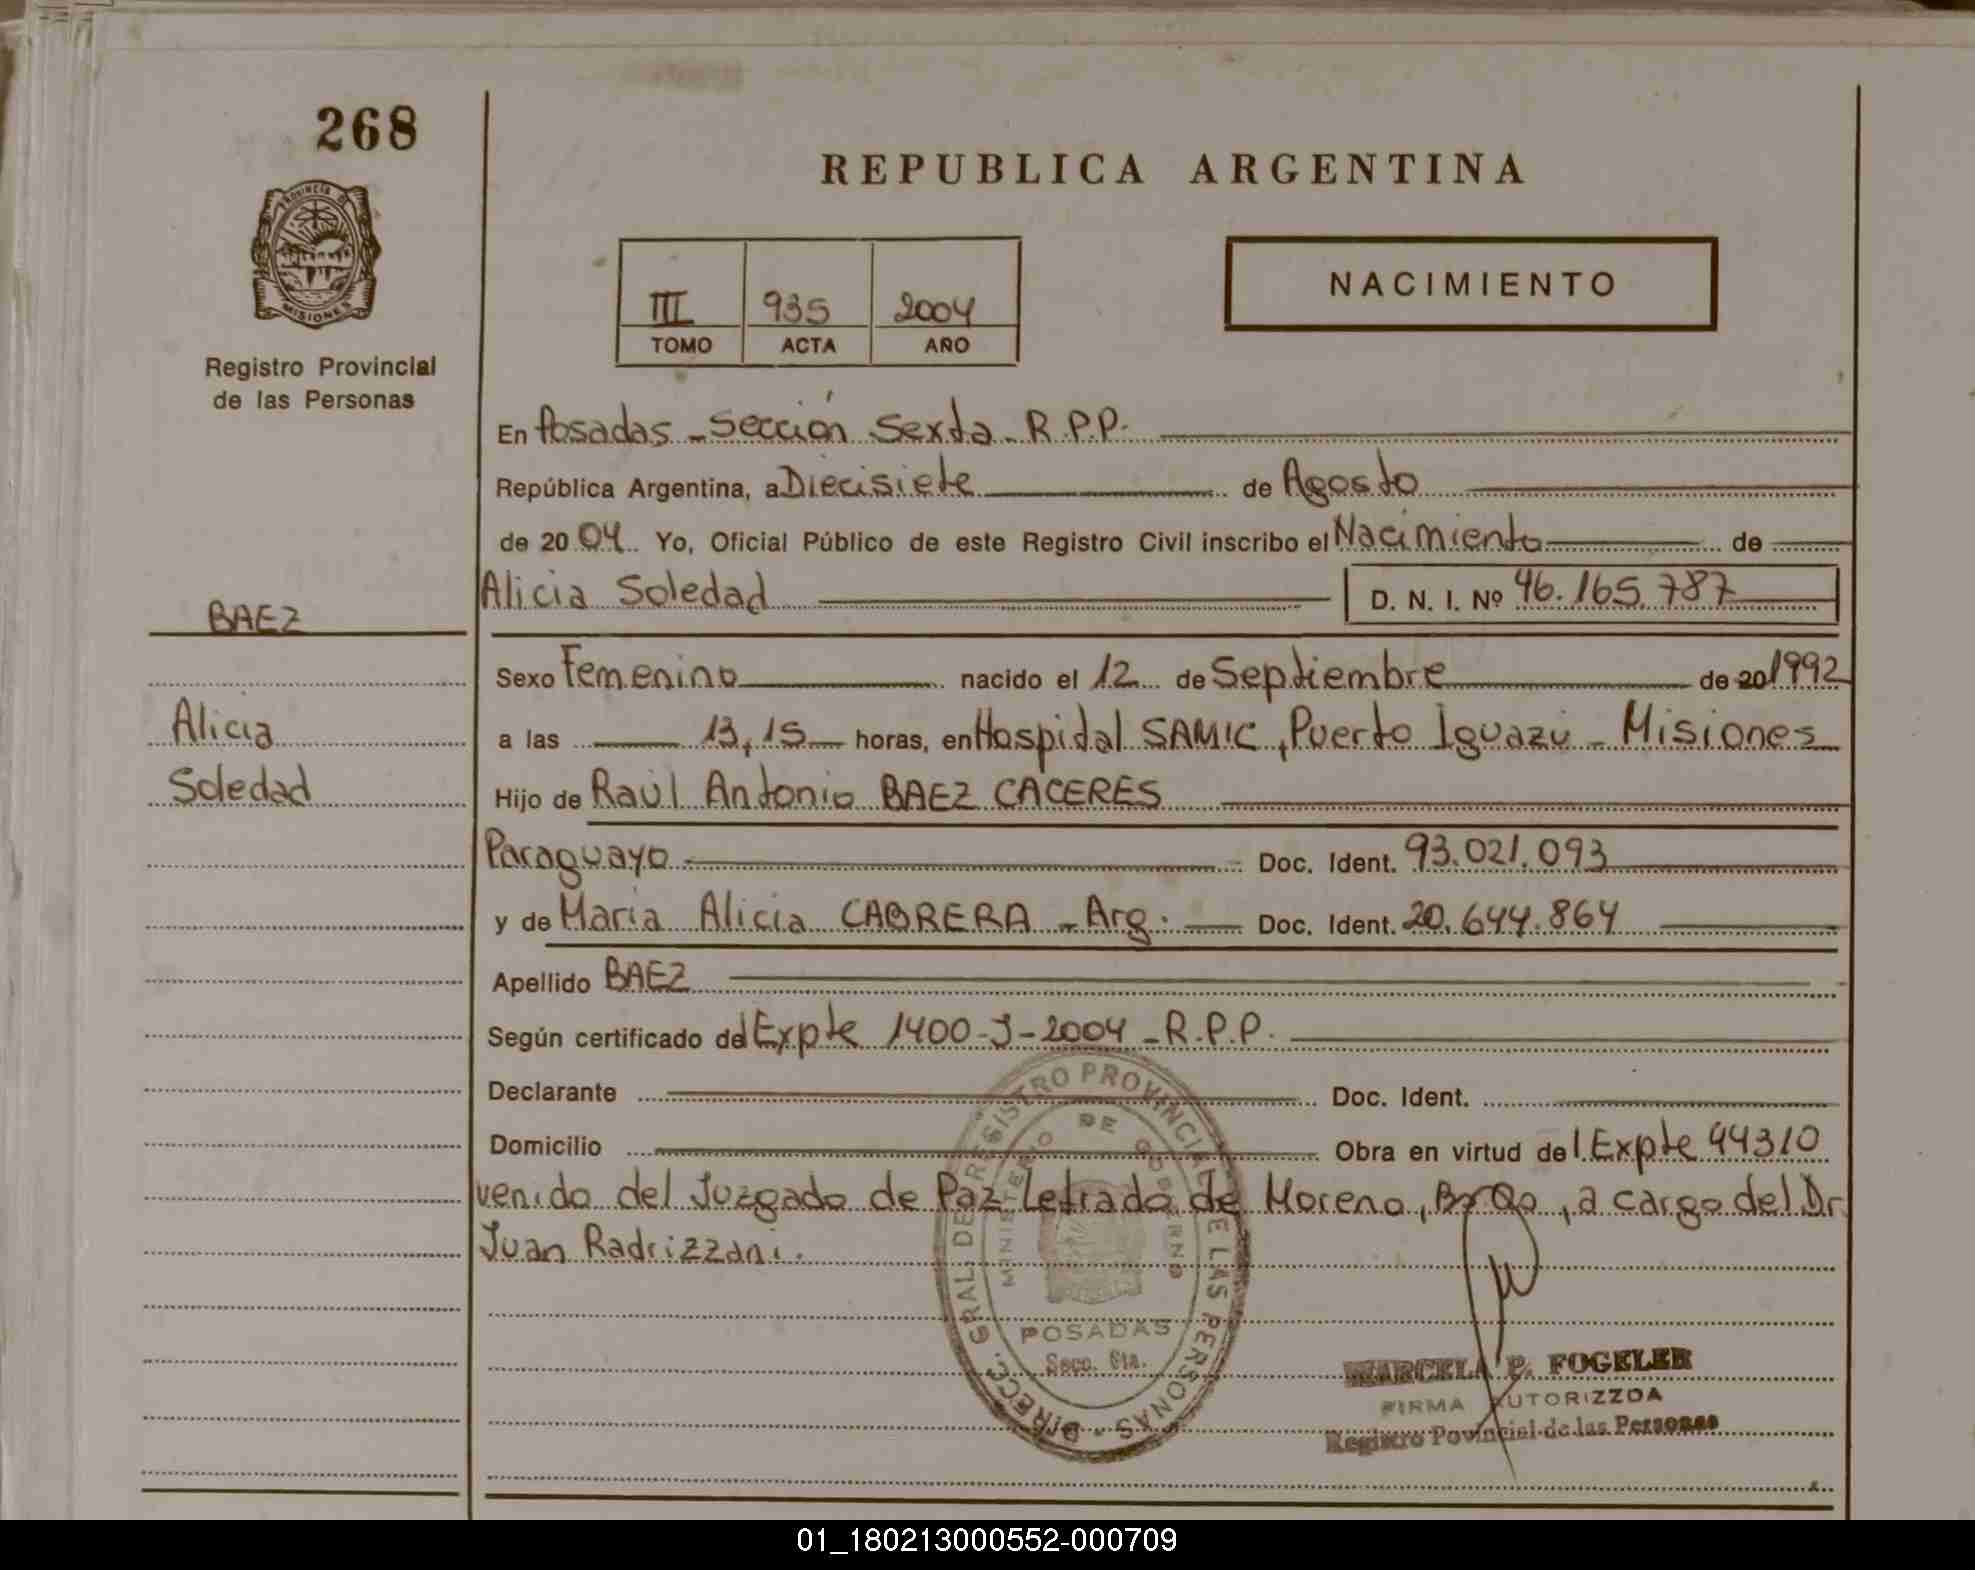 268
REPUBLICA ARGENTINA
PROVINCIA DE
MISIONES
Registro Provincial
de las Personas
III 935 2004
TOMO ACTA AÑO
NACIMIENTO
En Posadas - Sección Sexta - R.P.P.
República Argentina, a Diecisiete de Agosto
de 2004 Yo, Oficial Público de este Registro Civil inscribo el Nacimiento de
Alicia Soledad D. N. I. Nº 46.165.787
BAEZ
Alicia
Soledad
Sexo Femenino nacido el 12 de Septiembre de 20 1992
a las 13,15 horas, en Hospital SAMIC, Puerto Iguazú - Misiones
Hijo de Raúl Antonio BAEZ CACERES
Paraguayo Doc. Ident. 93.021.093
y de Maria Alicia CABRERA - Arg. Doc. Ident. 20.644.864
Apellido BAEZ
Según certificado del Expte 1400-J-2004 - R.P.P.
Declarante Doc. Ident.
Domicilio Obra en virtud del Expte 44310
venido del Juzgado de Paz Letrado de Moreno, a cargo del Dr.
Juan Radrizzani.
DIRECC. GRAL. DE REGISTRO PROVINCIAL DE LAS PERSONAS
MINISTERIO DE GOBIERNO
POSADAS
Secc. 6ta.
MARCELA P. FOGELER
FIRMA AUTORIZZDA
Registro Povincial de las Personas
01_180213000552-000709